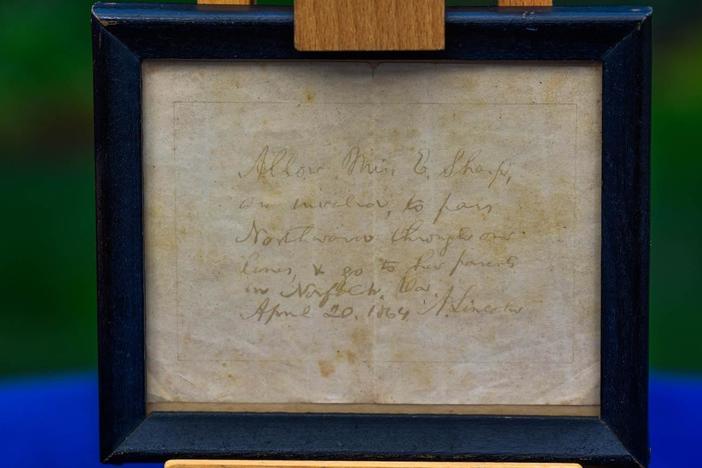 Allow Miss E. Sharp,
an invalid, to pass
Northward through our
lines, & go to her parents
in Norfolk, Va.
April 20, 1864 A. Lincoln